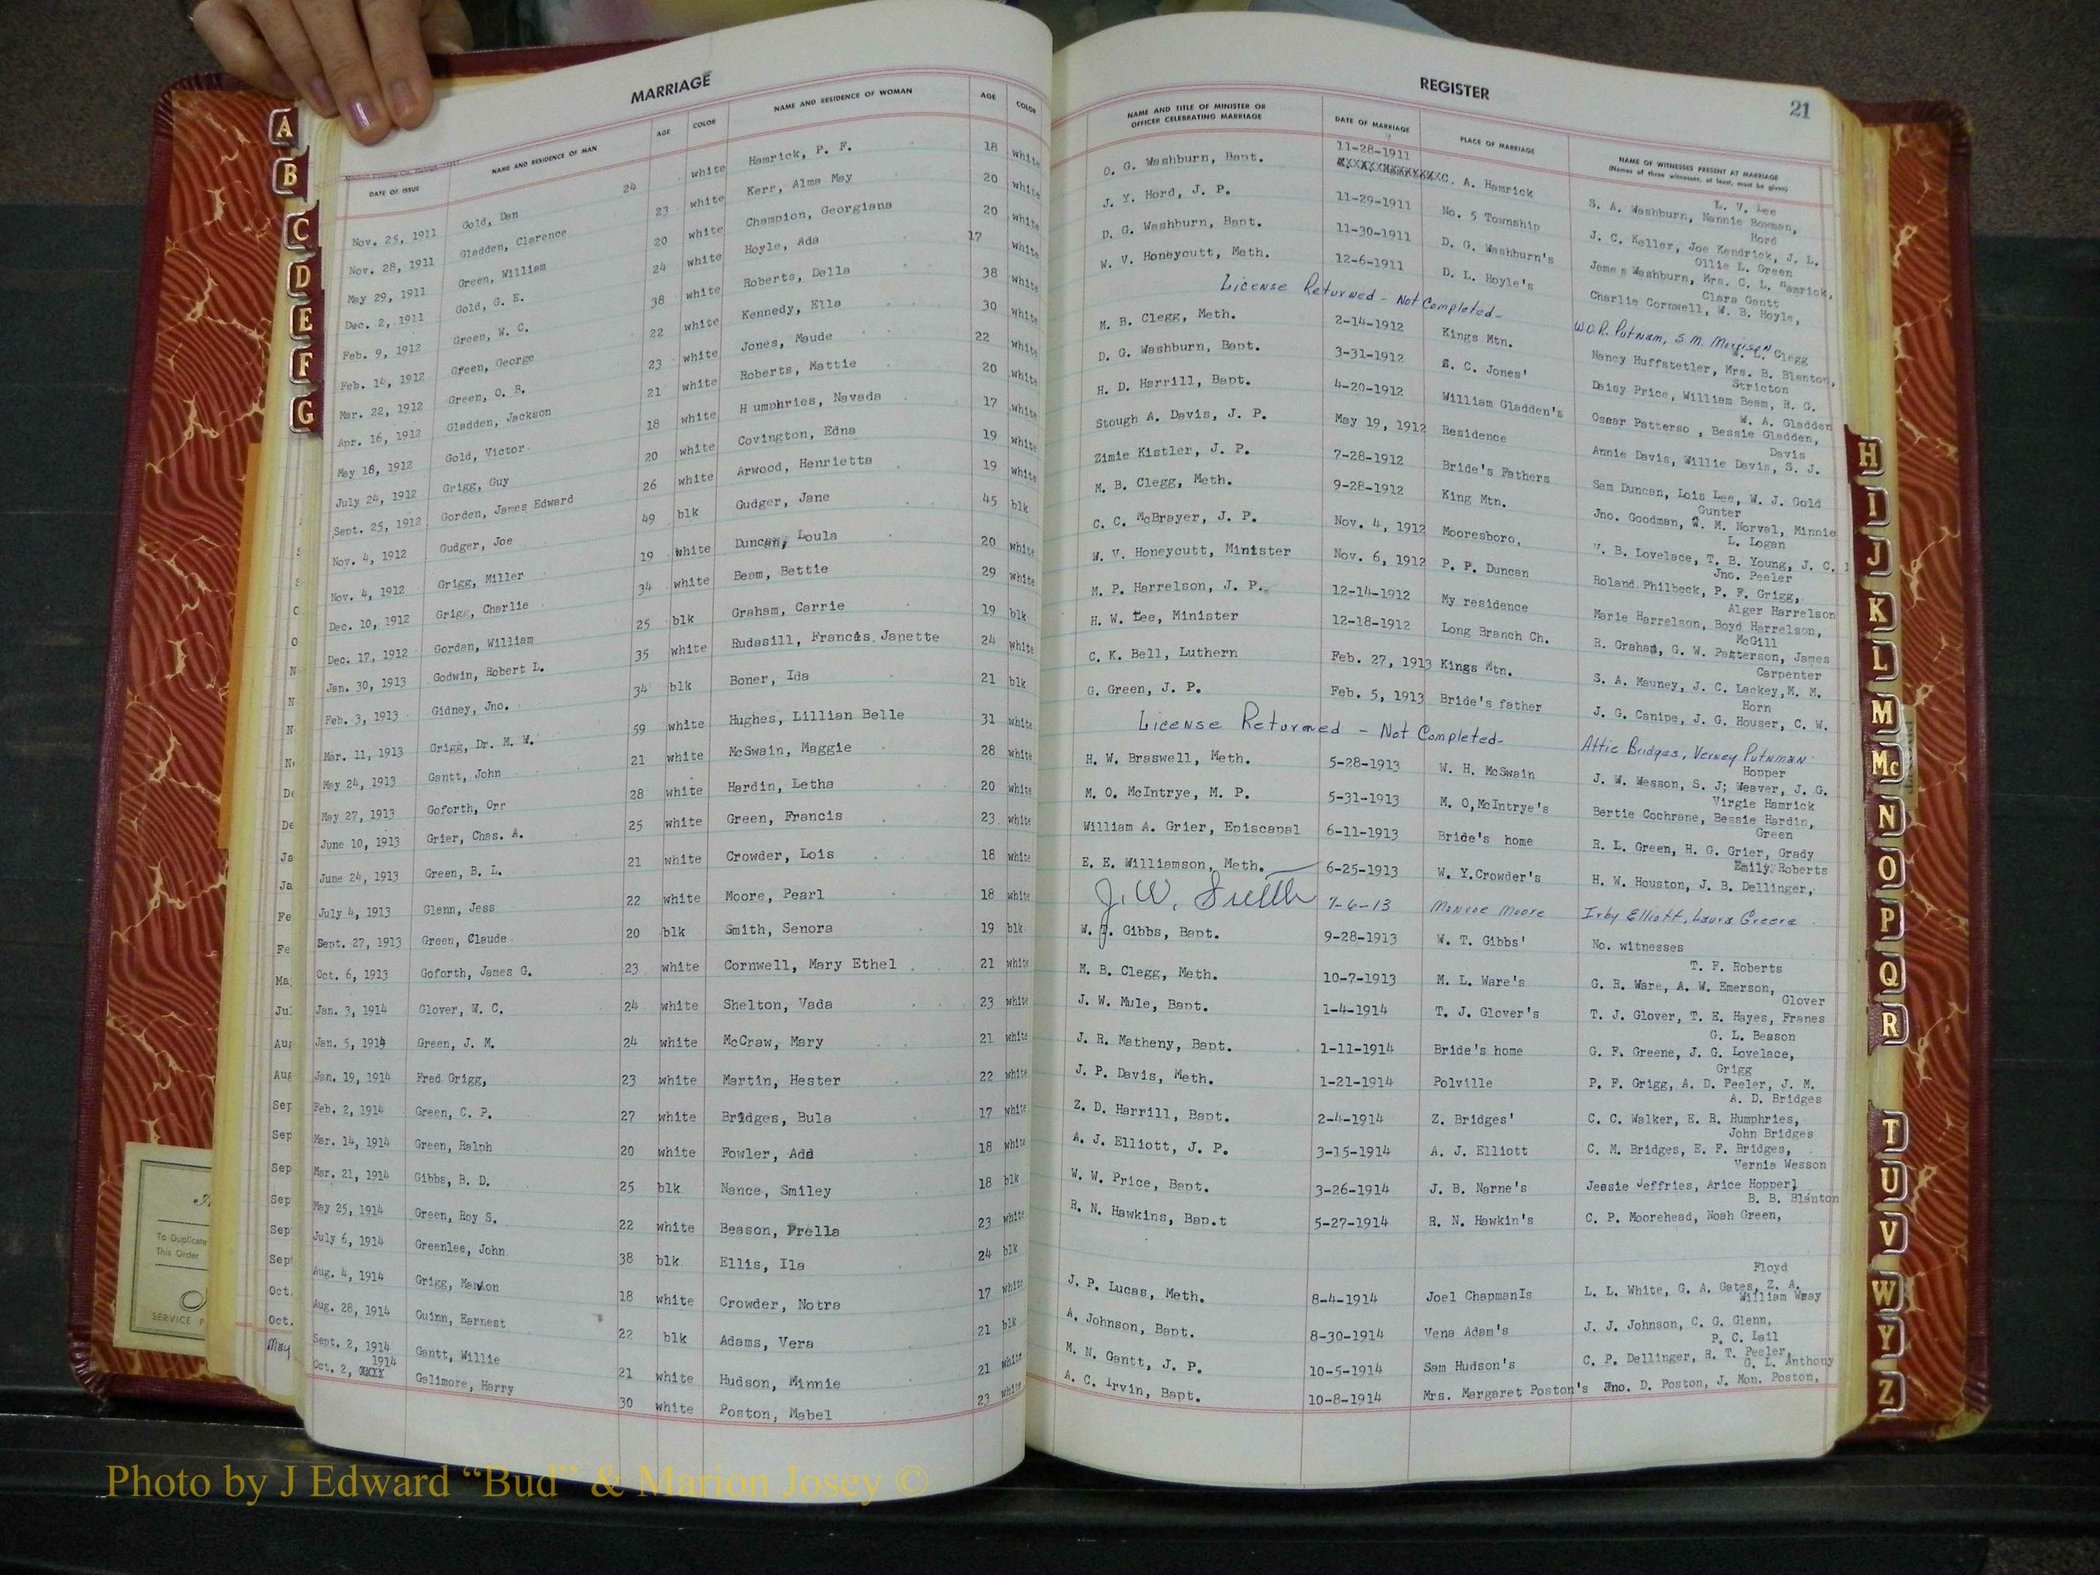 MARRIAGE
DATE OF ISSUE NAME AND RESIDENCE OF MAN AGE COLOR NAME AND RESIDENCE OF WOMAN AGE COLOR
Nov. 25, 1911 Gold, Dan 24 white Hamrick, P. F. 18 white
Nov. 28, 1911 Gladden, Clarence 23 white Kerr, Alma May 20 white
May 29, 1911 Green, William 20 white Champion, Georgiana 20 white
Dec. 2, 1911 Gold, G. E. 24 white Hoyle, Ada 17 white
Feb. 9, 1912 Green, W. C. 38 white Roberts, Della 38 white
Feb. 14, 1912 Green, George 22 white Kennedy, Ella 30 white
Mar. 22, 1912 Green, O. B. 23 white Jones, Maude 22 white
Apr. 16, 1912 Gladden, Jackson 21 white Roberts, Mattie 20 white
May 18, 1912 Gold, Victor 18 white Humphries, Navada 17 white
July 24, 1912 Grigg, Guy 20 white Covington, Edna 19 white
Sept. 25, 1912 Gorden, James Edward 26 white Arwood, Henrietta 19 white
Nov. 4, 1912 Gudger, Joe 49 blk Gudger, Jane 45 blk
Nov. 4, 1912 Grigg, Miller 19 white Duncan, Loula 20 white
Dec. 10, 1912 Grigg, Charlie 34 white Beam, Bettie 29 white
Dec. 17, 1912 Gordan, William 25 blk Graham, Carrie 19 blk
Jan. 30, 1913 Godwin, Robert L. 35 white Rudasill, Francis Janette 24 white
Feb. 3, 1913 Gidney, Jno. 34 blk Boner, Ida 21 blk
Mar. 11, 1913 Grigg, Dr. M. W. 59 white Hughes, Lillian Belle 31 white
May 24, 1913 Gantt, John 21 white McSwain, Maggie 28 white
May 27, 1913 Goforth, Orr 28 white Hardin, Letha 20 white
June 10, 1913 Grier, Chas. A. 25 white Green, Francis 23 white
June 24, 1913 Green, B. L. 21 white Crowder, Lois 18 white
July 4, 1913 Glenn, Jess 22 white Moore, Pearl 18 white
Sept. 27, 1913 Green, Claude 20 blk Smith, Senora 19 blk
Oct. 6, 1913 Goforth, James G. 23 white Cornwell, Mary Ethel 21 white
Jan. 3, 1914 Glover, W. C. 24 white Shelton, Vada 23 white
Jan. 5, 1914 Green, J. M. 24 white McCraw, Mary 21 white
Jan. 19, 1914 Fred Grigg, 23 white Martin, Hester 22 white
Feb. 2, 1914 Green, C. P. 27 white Bridges, Bula 17 white
Mar. 14, 1914 Green, Ralph 20 white Fowler, Add 18 white
Mar. 21, 1914 Gibbs, B. D. 25 blk Nance, Smiley 18 blk
May 25, 1914 Green, Roy S. 22 white Beason, Prella 23 white
July 6, 1914 Greenlee, John 38 blk Ellis, Ila 24 blk
Aug. 4, 1914 Grigg, Manion 18 white Crowder, Notra 17 white
Aug. 28, 1914 Guinn, Earnest 22 blk Adams, Vera 21 blk
Sept. 2, 1914 Gantt, Willie 21 white Hudson, Minnie 21 white
1914
Oct. 2, Galimore, Harry 30 white Poston, Mabel 23 white
REGISTER
21
NAME AND TITLE OF MINISTER OR OFFICER CELEBRATING MARRIAGE DATE OF MARRIAGE PLACE OF MARRIAGE NAME OF WITNESSES PRESENT AT MARRIAGE
(Names of three witnesses, at least, must be given)
11-28-1911
L. V. Lee
O. G. Washburn, Bapt. C. A. Hamrick S. A. Washburn, Nannie Bowman,
Hord
J. Y. Hord, J. P. 11-29-1911 No. 5 Township J. C. Keller, Joe Kendrick, J. L.
Ollie L. Green
D. G. Washburn, Bapt. 11-30-1911 D. G. Washburn's James Washburn, Mrs. C. L. Hamrick,
Clara Gantt
W. V. Honeycutt, Meth. 12-6-1911 D. L. Hoyle's Charlie Cornwell, W. B. Hoyle,
License Returned - Not Completed- W.O.R. Putnam, S.M. Morrison
W. L. Clegg
M. B. Clegg, Meth. 2-14-1912 Kings Mtn. Nancy Huffstetler, Mrs. B. Blanton,
Stricton
D. G. Washburn, Bapt. 3-31-1912 C. Jones' Daisy Price, William Beam, R. G.
W. A. Gladden
H. D. Harrill, Bapt. 4-20-1912 William Gladden's Oscar Patterso , Bessie Gladden,
Davis
Stough A. Davis, J. P. May 19, 1912 Residence Annie Davis, Willie Davis, S. J.
Zimie Kistler, J. P. 7-28-1912 Bride's Fathers Sam Duncan, Lois Lee, W. J. Gold
Gunter
M. B. Clegg, Meth. 9-28-1912 King Mtn. Jno. Goodman, M. Norval, Minnie
L. Logan
C. C. McBrayer, J. P. Nov. 4, 1912 Mooresboro, V. B. Lovelace, T. B. Young, J. C.
Jno. Peeler
W. V. Honeycutt, Minister Nov. 6, 1912 P. P. Duncan Roland Philbeck, P. F. Grigg,
Alger Harrelson
M. P. Harrelson, J. P. 12-14-1912 My residence Marie Harrelson, Boyd Harrelson,
McGill
H. W. Lee, Minister 12-18-1912 Long Branch Ch. R. Graham, G. W. Patterson, James
Carpenter
C. K. Bell, Luthern Feb. 27, 1913 Kings Mtn. S. A. Mauney, J. C. Lackey, M. M.
Horn
G. Green, J. P. Feb. 5, 1913 Bride's father J. G. Canipe, J. G. Houser, C. W.
License Returned - Not Completed- Attie Bridges, Verney Putnman
Hopper
H. W. Braswell, Meth. 5-28-1913 W. H. McSwain J. W. Wesson, S. J; Weaver, J. G.
Virgie Hamrick
M. O. McIntrye, M. P. 5-31-1913 M. O, McIntrye's Bertie Cochrane, Bessie Hardin,
Green
William A. Grier, Episcopal 6-11-1913 Bride's home R. L. Green, H. G. Grier, Grady
Emily Roberts
E. E. Williamson, Meth. 6-25-1913 W. Y. Crowder's H. W. Houston, J. B. Dellinger,
J. W. 7-6-13 Monroe Moore Irby Elliott, Laura Greene
Gibbs, Bapt. 9-28-1913 W. T. Gibbs' No. witnesses
T. F. Roberts
M. B. Clegg, Meth. 10-7-1913 M. L. Ware's G. R. Ware, A. W. Emerson,
Glover
J. W. Mule, Bapt. 1-4-1914 T. J. Glover's T. J. Glover, T. E. Hayes, Franes
G. L. Beason
J. R. Matheny, Bapt. 1-11-1914 Bride's home G. F. Greene, J. G. Lovelace,
Grigg
J. P. Davis, Meth. 1-21-1914 Polville P. F. Grigg, A. D. Peeler, J. M.
A. D. Bridges
Z. D. Harrill, Bapt. 2-4-1914 Z. Bridges' C. C. Walker, E. R. Humphries,
John Bridges
A. J. Elliott, J. P. 3-15-1914 A. J. Elliott C. M. Bridges, E. F. Bridges,
Vernia Wesson
W. W. Price, Bapt. 3-26-1914 J. B. Narne's Jessie Jeffries, Arice Hopper,
B. B. Blanton
R. N. Hawkins, Bap.t 5-27-1914 R. N. Hawkin's C. P. Moorehead, Noah Green,
Floyd
J. P. Lucas, Meth. 8-4-1914 Joel Chapmanls L. L. White, G. A. Gates, Z. A.
William Wray
A. Johnson, Bapt. 8-30-1914 Vena Adam's J. J. Johnson, C. G. Glenn,
P. C. Lail
M. N. Gantt, J. P. 10-5-1914 Sam Hudson's C. P. Dellinger, R. T. Peeler,
G. L. Anthony
A. C. Irvin, Bapt. 10-8-1914 Mrs. Margaret Poston's Jno. D. Poston, J. Mon. Poston,
A
B
C
D
E
F
G
H
I
J
K
L
M
Mc
N
O
P
Q
R
T
U
V
W
Y
Z
To Duplicate
This Order
SERVICE
May
Photo by J Edward “Bud” & Marion Josey ©